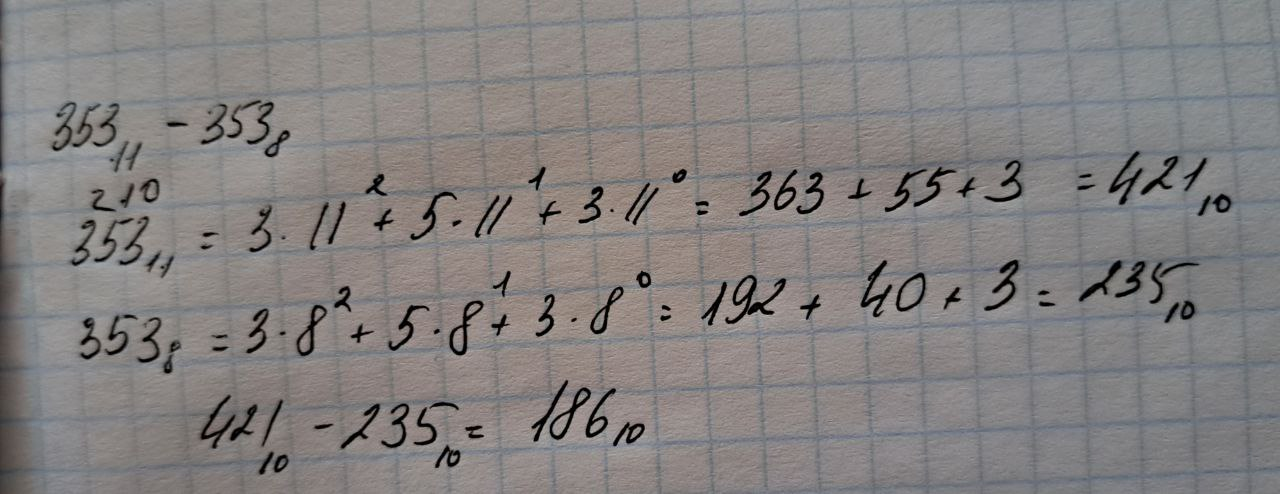 353₁₁ - 353₈
210
353₁₁ = 3·11² + 5·11¹ + 3·11⁰ = 363 + 55 + 3 = 421₁₀
353₈ = 3·8² + 5·8¹ + 3·8⁰ = 192 + 40 + 3 = 235₁₀
421₁₀ - 235₁₀ = 186₁₀